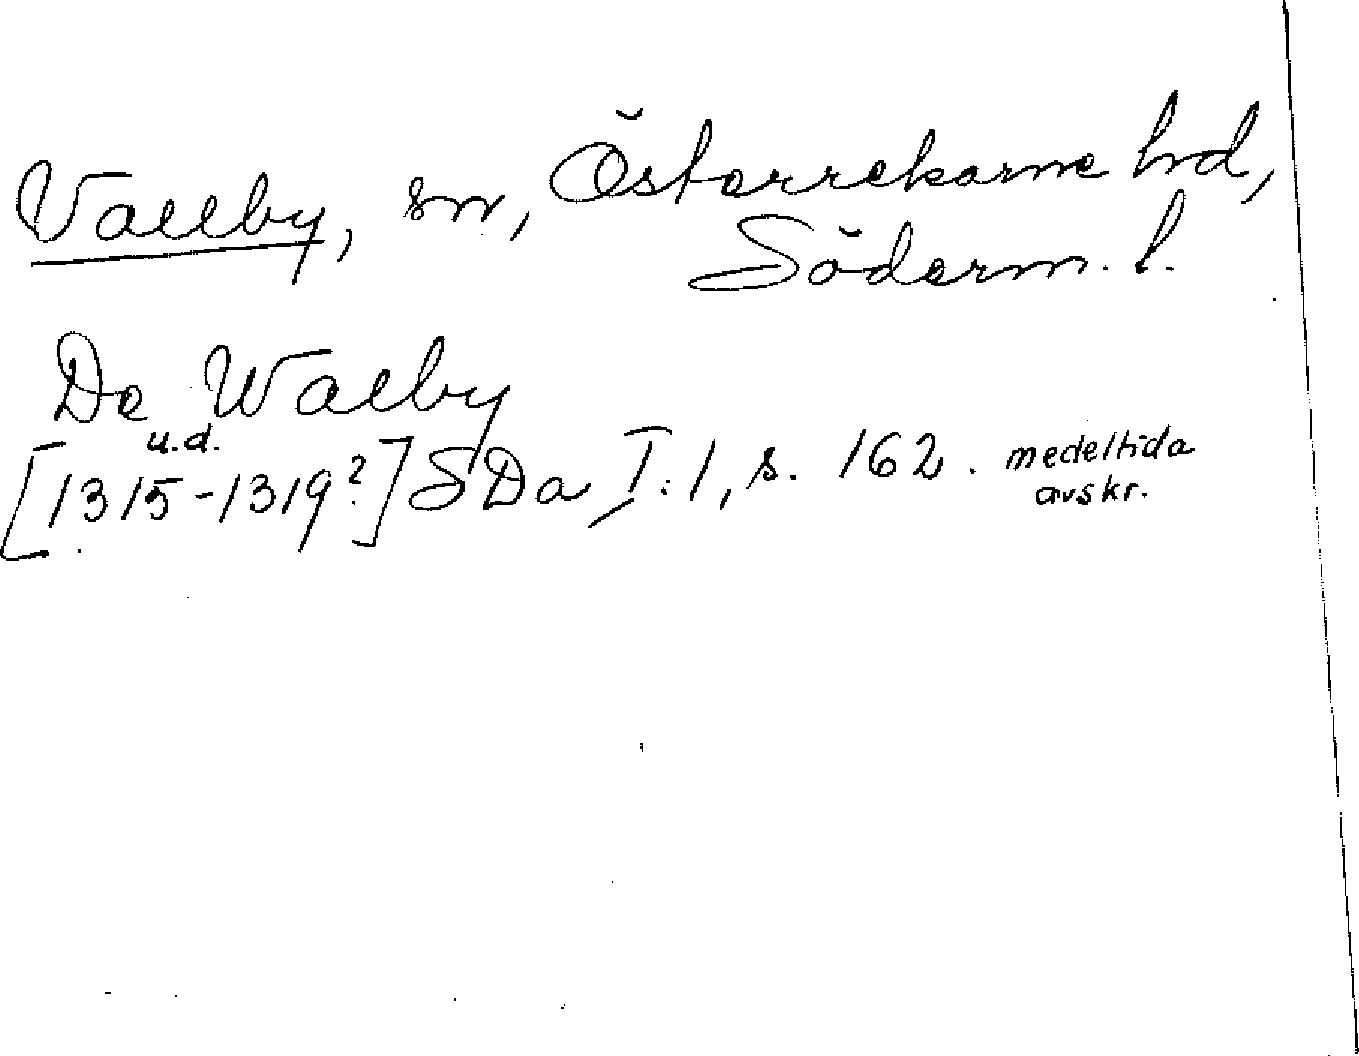 Vallby, sn, Österrekarne hrd,
Söderm. l.
De Walby
u.d.
[1315-1319?] SDa I:1, s. 162. medeltida
avskr.